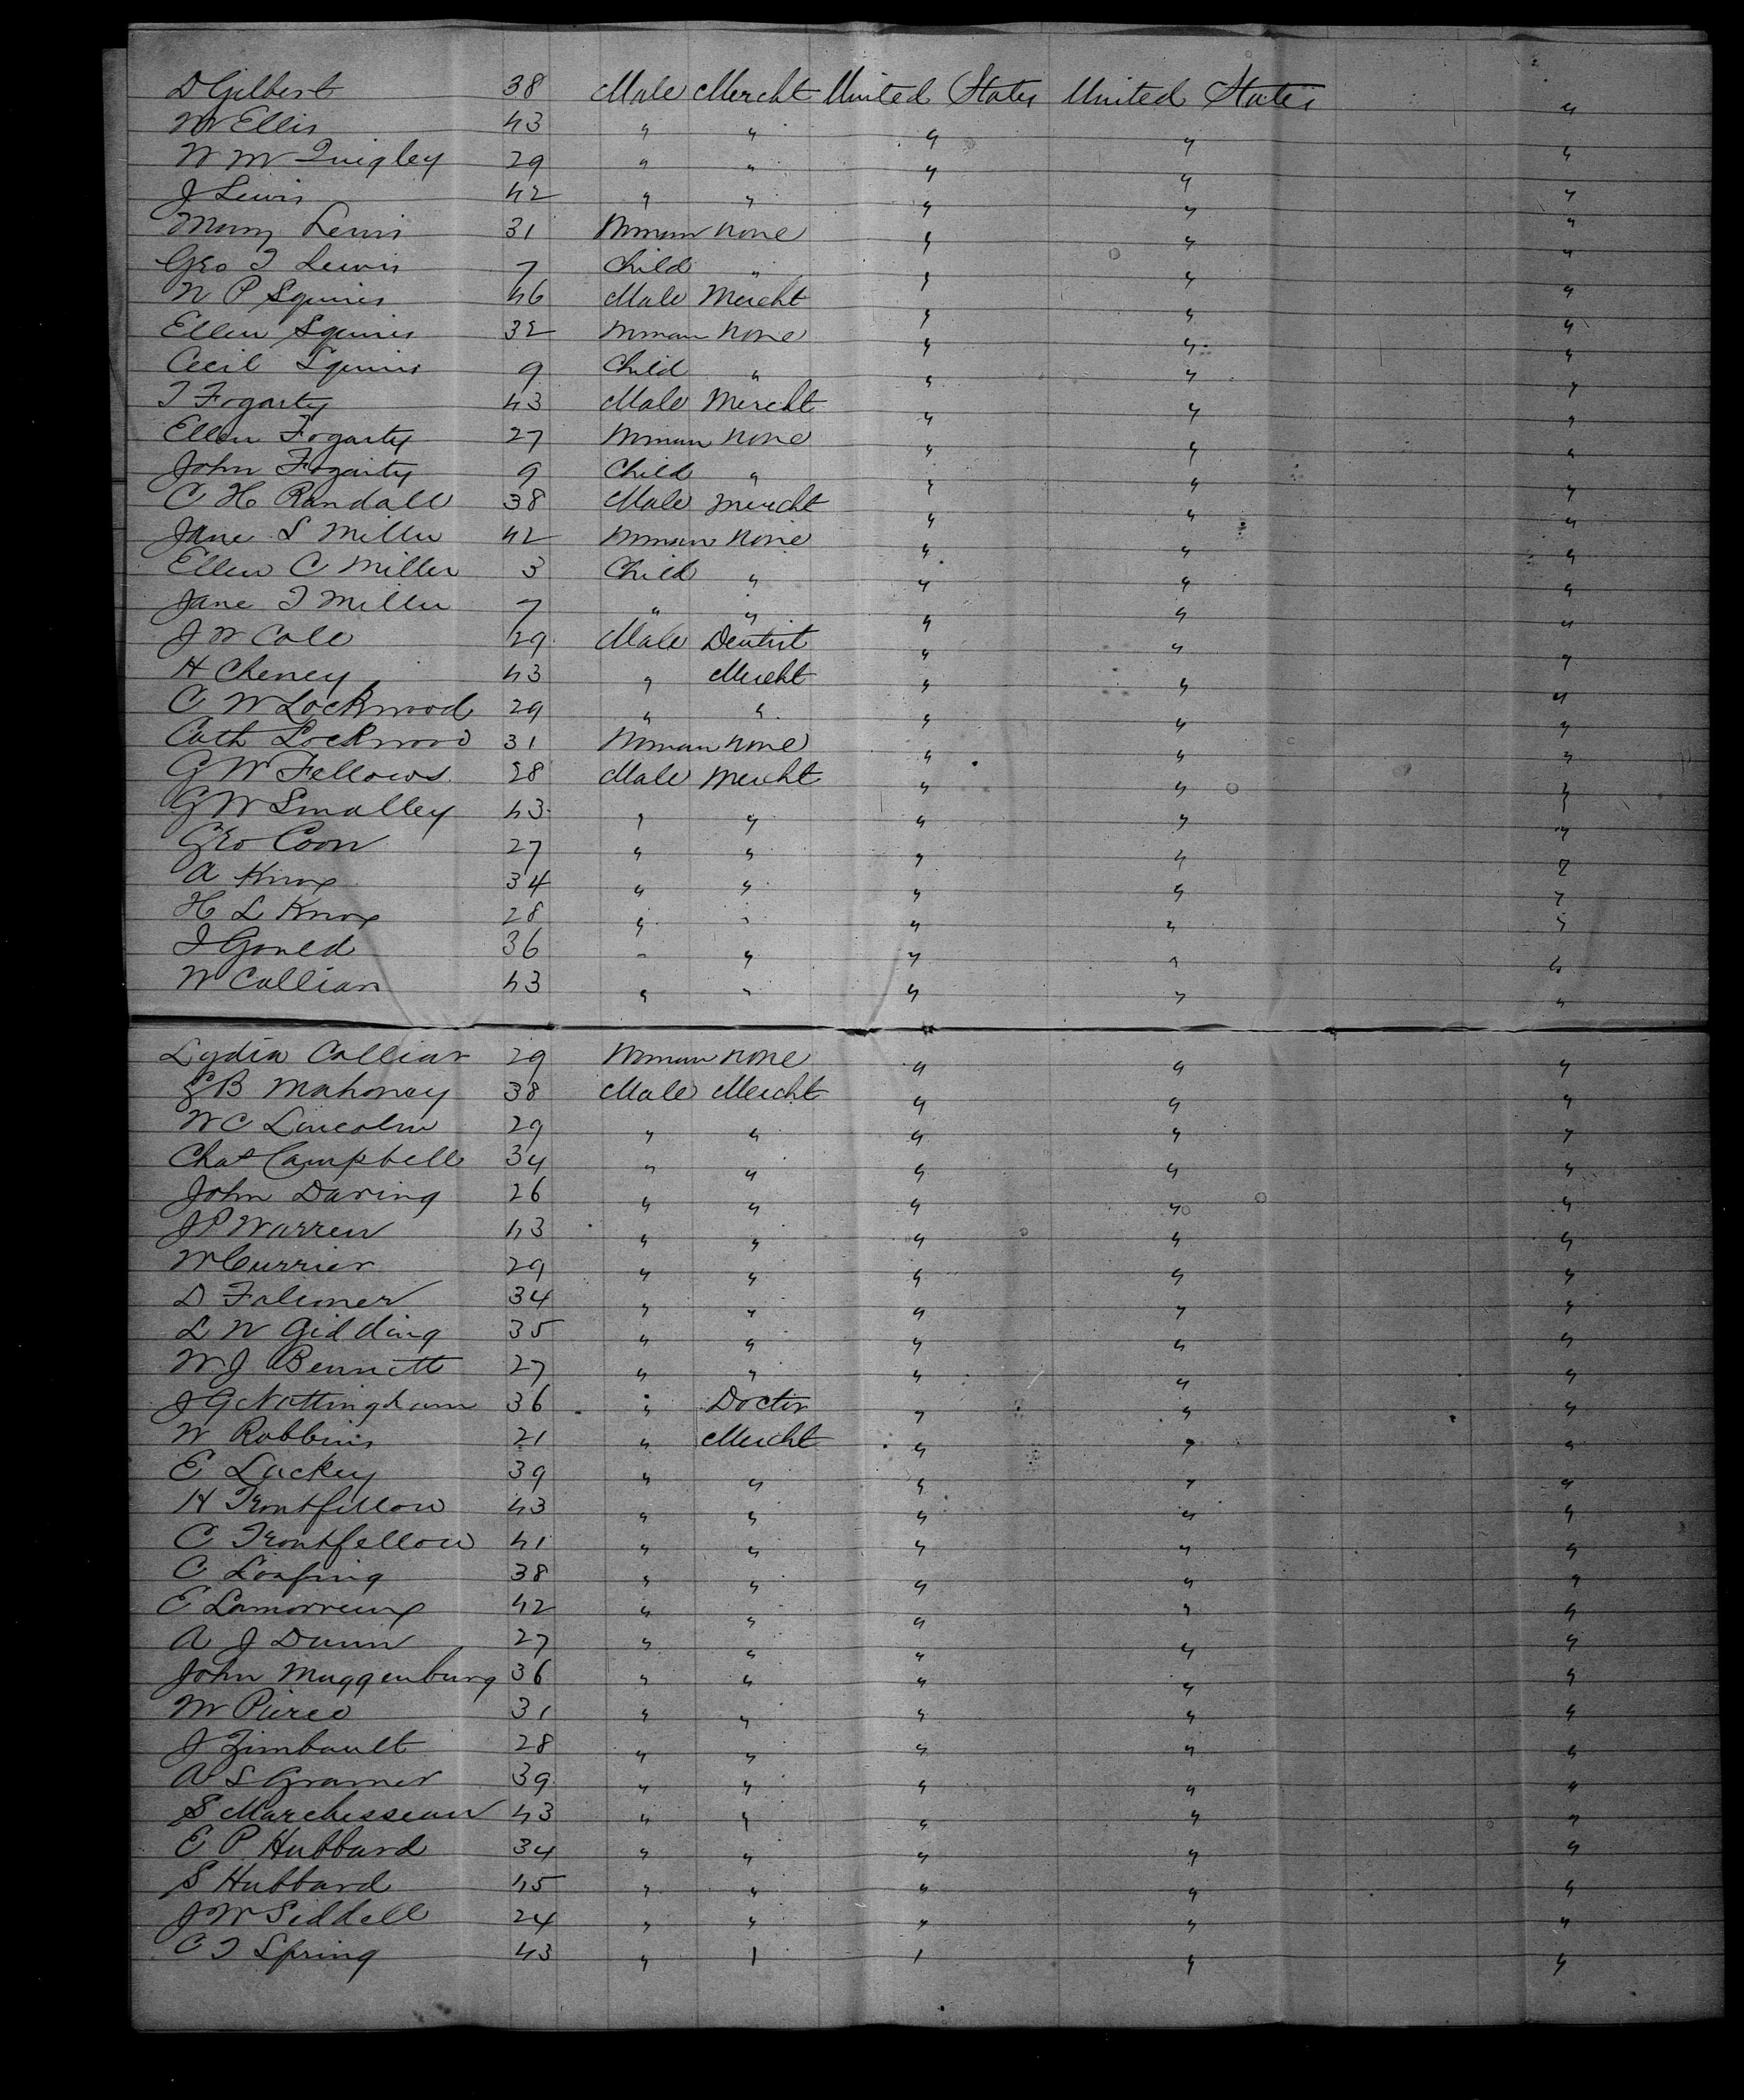 D Gilbert 38 Male Mercht United States United States "
W Ellis 43 " " " " "
W M Quigley 29 " " " " "
J Lewis 42 " " " " "
Mary Lewis 31 Woman none " " "
Geo T Lewis 7 Child " " " "
N P Squires 46 Male Mercht " " "
Ellen Squires 32 Woman none " " "
Cecil Squires 9 Child " " " "
T Fogarty 43 Male Mercht " " "
Ellen Fogarty 27 Woman none " " "
John Fogarty 9 Child " " " "
C H Randall 38 Male Mercht " " "
Jane S Miller 42 Woman none " " "
Ellen C Miller 3 Child " " " "
Jane T Miller 7 " " " " "
J W Cole 29 Male Dentist " " "
H Cheney 43 " Mercht " " "
C W Lockwood 29 " " " " "
Cath Lockwood 31 Woman none " " "
G W Fellows 28 Male Mercht " " "
G W Smalley 43 " " " " "
Geo Coon 27 " " " " "
A Knox 34 " " " " "
H L Knox 28 " " " " "
I Gould 36 " " " " "
W Callian 43 " " " " "
Lydia Callian 29 Woman none " " "
B Mahoney 38 Male Mercht " " "
W C Lincoln 29 " " " " "
Chas Campbell 34 " " " " "
John Daring 26 " " " " "
J P Warren 43 " " " " "
W Currier 29 " " " " "
D Falimer 34 " " " " "
L W Gidding 35 " " " " "
W J Bennett 27 " " " " "
J G Nottingham 36 " Doctor " " "
W Robbins 21 " Mercht " " "
E Lackey 39 " " " " "
H Troutfellow 43 " " " " "
C Troutfellow 41 " " " " "
C 38 " " " " "
E Lamorreux 42 " " " " "
A J Dunn 27 " " " " "
John Muggenburg 36 " " " " "
W Pierce 31 " " " " "
J Zimbault 28 " " " " "
A S Gramer 39 " " " " "
S Marchesseau 43 " " " " "
E P Hubbard 34 " " " " "
S Hubbard 45 " " " " "
J W Seddell 24 " " " " "
C T Spring 43 " " " " "